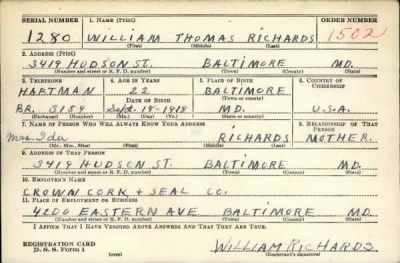 SERIAL NUMBER 1. NAME (Print) ORDER NUMBER
1280 WILLIAM THOMAS RICHARDS 1502
(First) (Middle) (Last)
2. ADDRESS (Print)
3419 HUDSON ST. BALTIMORE MD.
(Number and street or R. F. D. number) (Town) (County) (State)
3. TELEPHONE 4. AGE IN YEARS 5. PLACE OF BIRTH 6. COUNTRY OF CITIZENSHIP
HARTMAN 22 BALTIMORE
DATE OF BIRTH (Town or county)
BR. 3189 Sept. 19-1918 MD. U.S.A.
(Exchange) (Number) (Mo.) (Day) (Yr.) (State or country)
7. NAME OF PERSON WHO WILL ALWAYS KNOW YOUR ADDRESS 8. RELATIONSHIP OF THAT PERSON
Mrs. Ida RICHARDS MOTHER.
(Mr., Mrs., Miss) (First) (Middle) (Last)
9. ADDRESS OF THAT PERSON
3419 HUDSON ST. BALTIMORE MD.
(Number and street or R. F. D. number) (Town) (County) (State)
10. EMPLOYER'S NAME
CROWN CORK & SEAL CO.
11. PLACE OF EMPLOYMENT OR BUSINESS
4200 EASTERN AVE BALTIMORE MD.
(Number and street or R. F. D. number) (Town) (County) (State)
I AFFIRM THAT I HAVE VERIFIED ABOVE ANSWERS AND THAT THEY ARE TRUE.
REGISTRATION CARD
D. S. S. Form 1 (over) WILLIAM RICHARDS
(Registrant's signature)